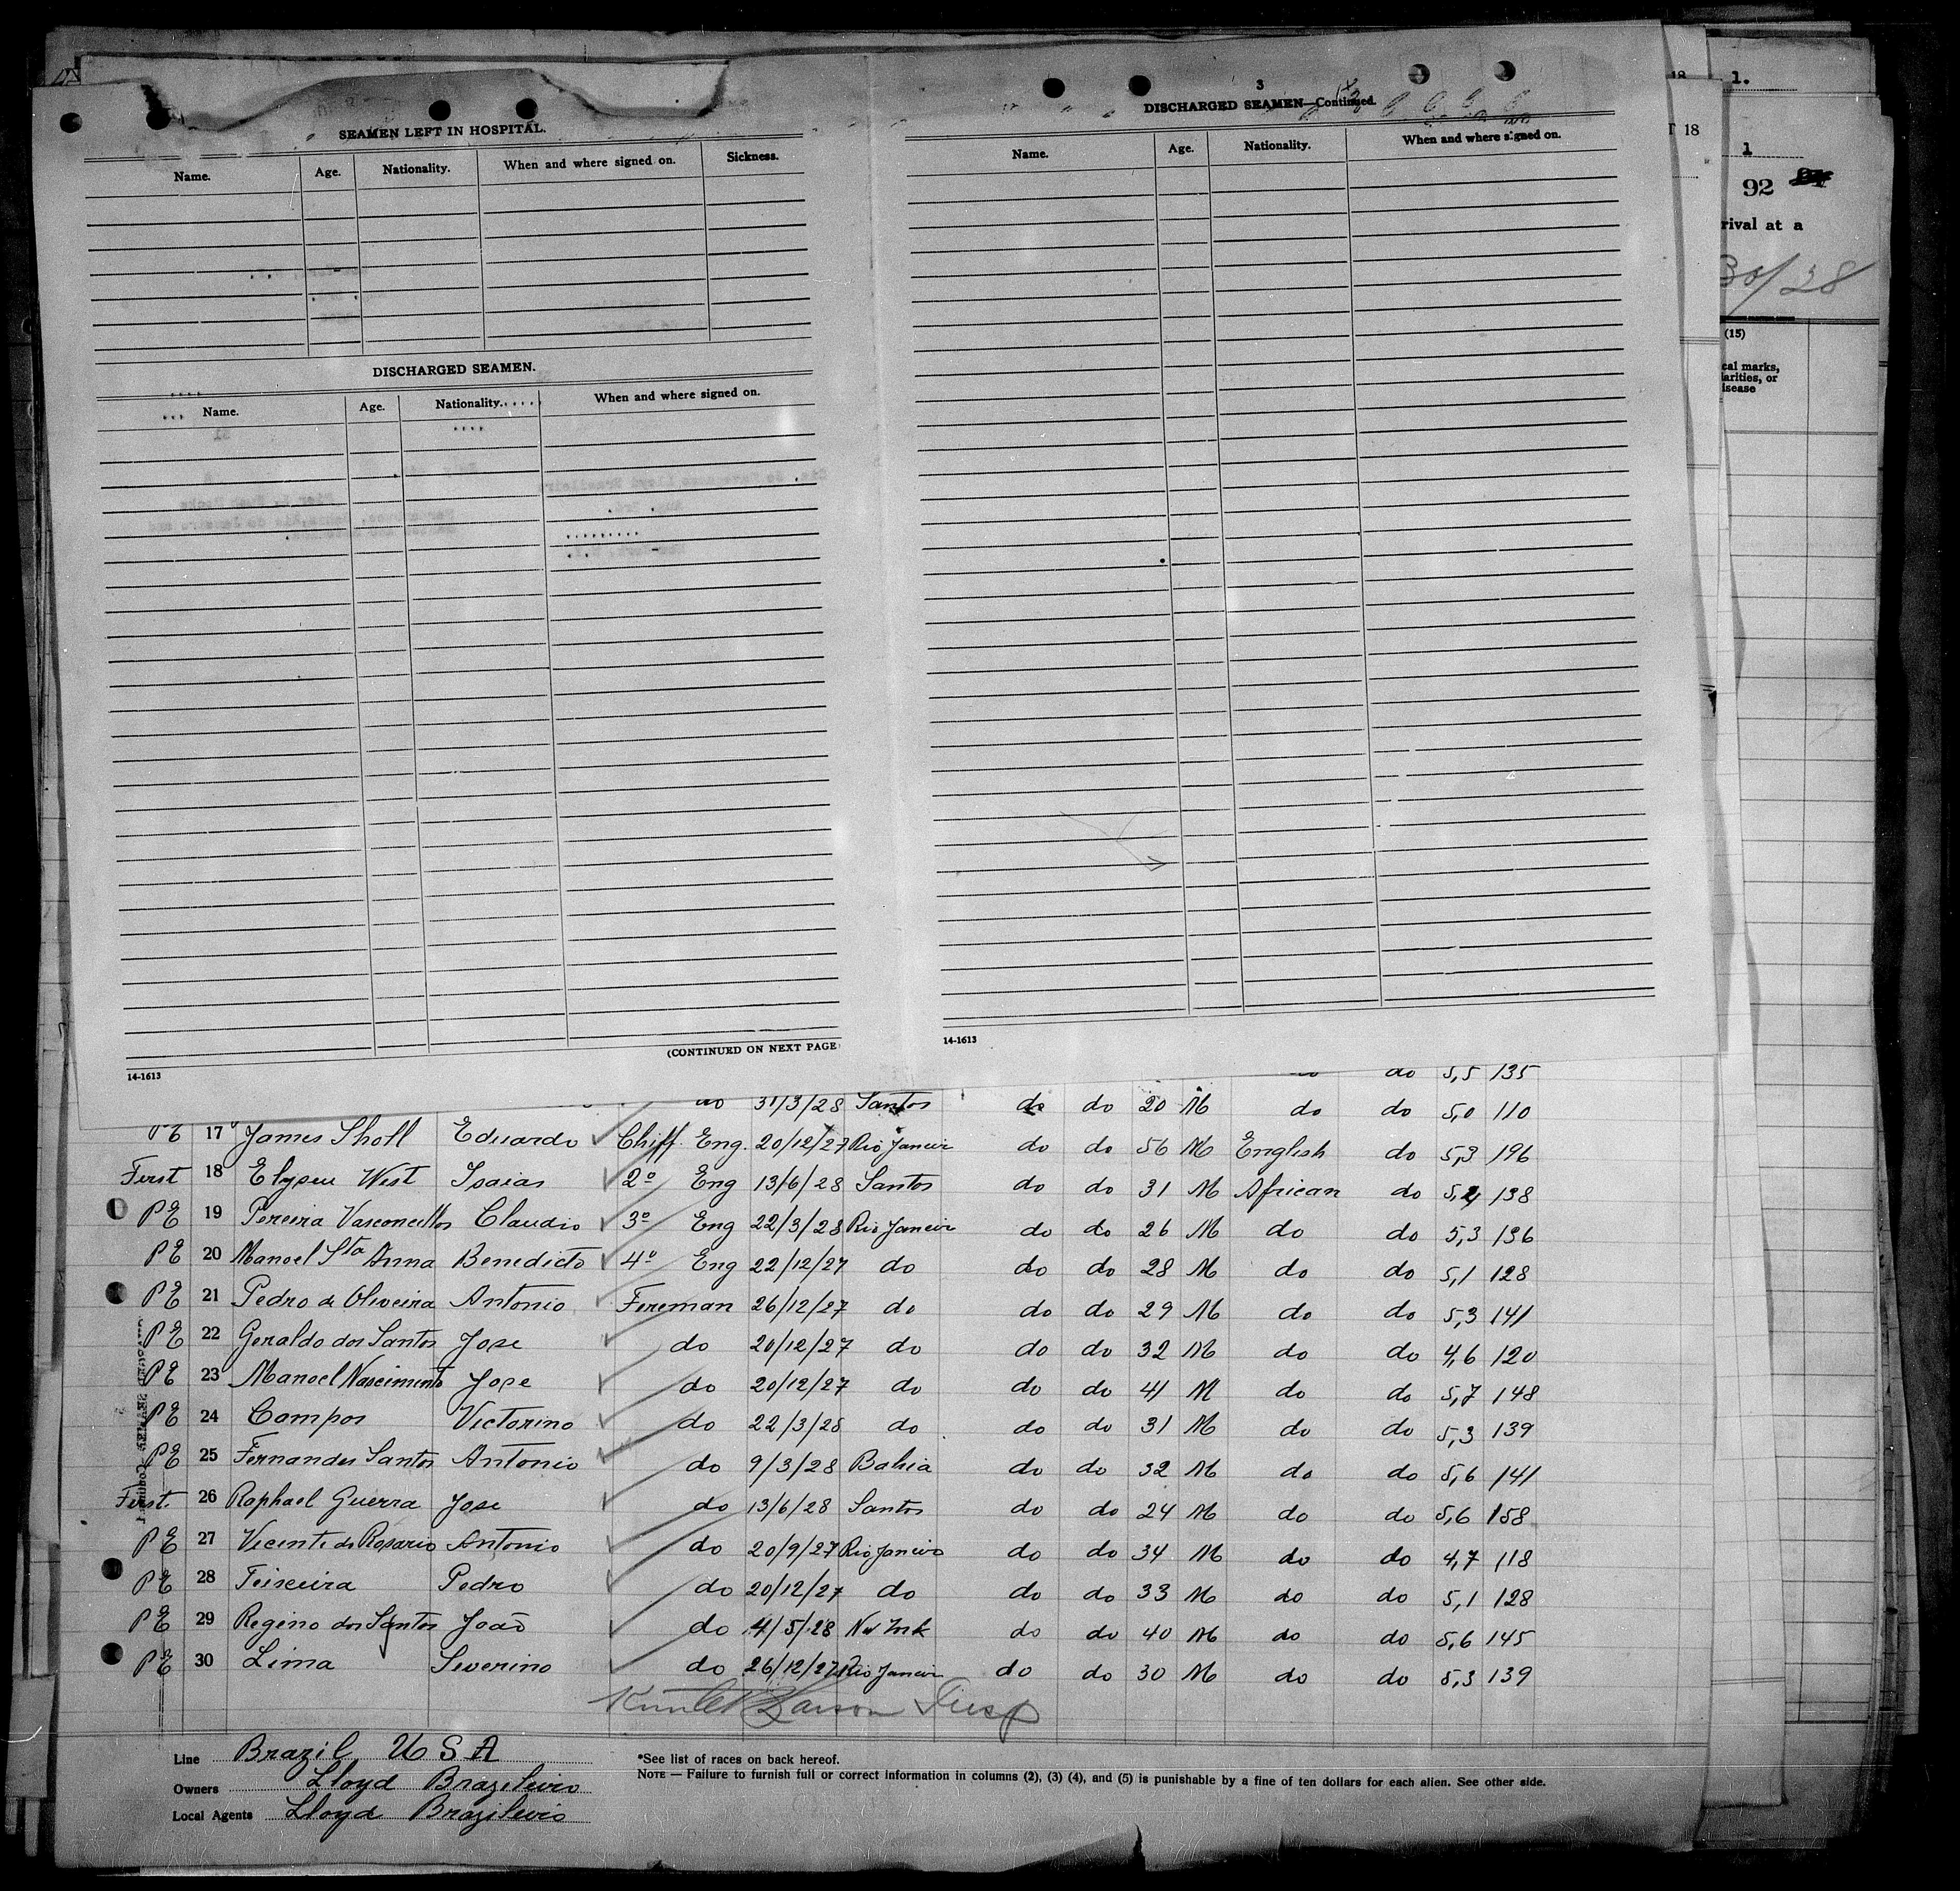 SEAMEN LEFT IN HOSPITAL.
Name. Age. Nationality. When and where signed on. Sickness.
DISCHARGED SEAMEN.
Name. Age. Nationality. When and where signed on.
(CONTINUED ON NEXT PAGE
14-1613
3
DISCHARGED SEAMEN—Continued.
Name. Age. Nationality. When and where signed on.
14-1613
18
1.
T 18
1
92
rival at a
30/28
(15)
cal marks,
larities, or
isease
do 5,5 135
do 31/3/28 Santos do do 20 M do do 5,0 110
PE 17 James Sholl Eduardo Chiff Eng. 20/12/27 Rio Janeir do do 56 M English do 5,3 196
First 18 Elyseu West Isaias 2º Eng 13/6/28 Santos do do 31 M African do 5,4 138
PE 19 Pereira Vasconcellos Claudio 3º Eng 22/3/28 Rio Janeir do do 26 M do do 5,3 136
PE 20 Manoel Sta Anna Benedicto 4º Eng 22/12/27 do do do 28 M do do 5,1 128
PE 21 Pedro de Oliveira Antonio Fireman 26/12/27 do do do 29 M do do 5,3 141
PE 22 Geraldo dos Santos Jose do 20/12/27 do do do 32 M do do 4,6 120
PE 23 Manoel Nascimento Jose do 20/12/27 do do do 41 M do do 5,7 148
PE 24 Campos Victorino do 22/3/28 do do do 31 M do do 5,3 139
PE 25 Fernandes Santos Antonio do 9/3/28 Bahia do do 32 M do do 5,6 141
First. 26 Raphael Guerra Jose do 13/6/28 Santos do do 24 M do do 5,6 158
PE 27 Vicente do Rosario Antonio do 20/9/27 Rio Janeiro do do 34 M do do 4,7 118
PE 28 Teixeira Pedro do 20/12/27 do do do 33 M do do 5,1 128
PE 29 Regino dos Santos João do 4/5/28 New York do do 40 M do do 5,6 145
PE 30 Lima Severino do 26/12/27 Rio Janeir do do 30 M do do 5,3 139
Larson Insp
Line Brazil U S A
Owners Lloyd Brazileiro
Local Agents Lloyd Brazileiro
*See list of races on back hereof.
NOTE — Failure to furnish full or correct information in columns (2), (3) (4), and (5) is punishable by a fine of ten dollars for each alien. See other side.